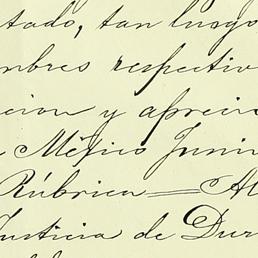 tado, tan luego
mbres respectiv
cion y aprecia
México Juni
Rúbrica = Al
Justicia de Dur